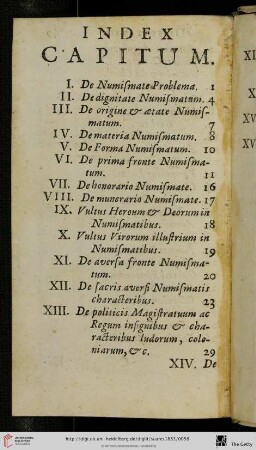 INDEX
CAPITUM.
I. De Numiſmate Problema. 1
II. De dignitate Numiſmatum. 4
III. De origine & ætate Numiſ-
matum. 7
IV. De materia Numiſmatum. 8
V. De Forma Numiſmatum. 10
VI. De prima fronte Numiſma-
tum. 11
VII. De honorario Numiſmate. 16
VIII. De munerario Numiſmate. 17
IX. Vultus Heroum & Deorum in
Numiſmatibus. 18
X. Vultus Virorum illuſtrium in
Numiſmatibus. 19
XI. De averſa fronte Numiſma-
tum. 20
XII. De ſacris averſi Numiſmatis
characteribus. 23
XIII. De politicis Magiſtratuum ac
Regum inſignibus & cha-
racteribus ludorum, colo-
niarum, &c. 29
XIV. De
XI
XV
XV
The Getty